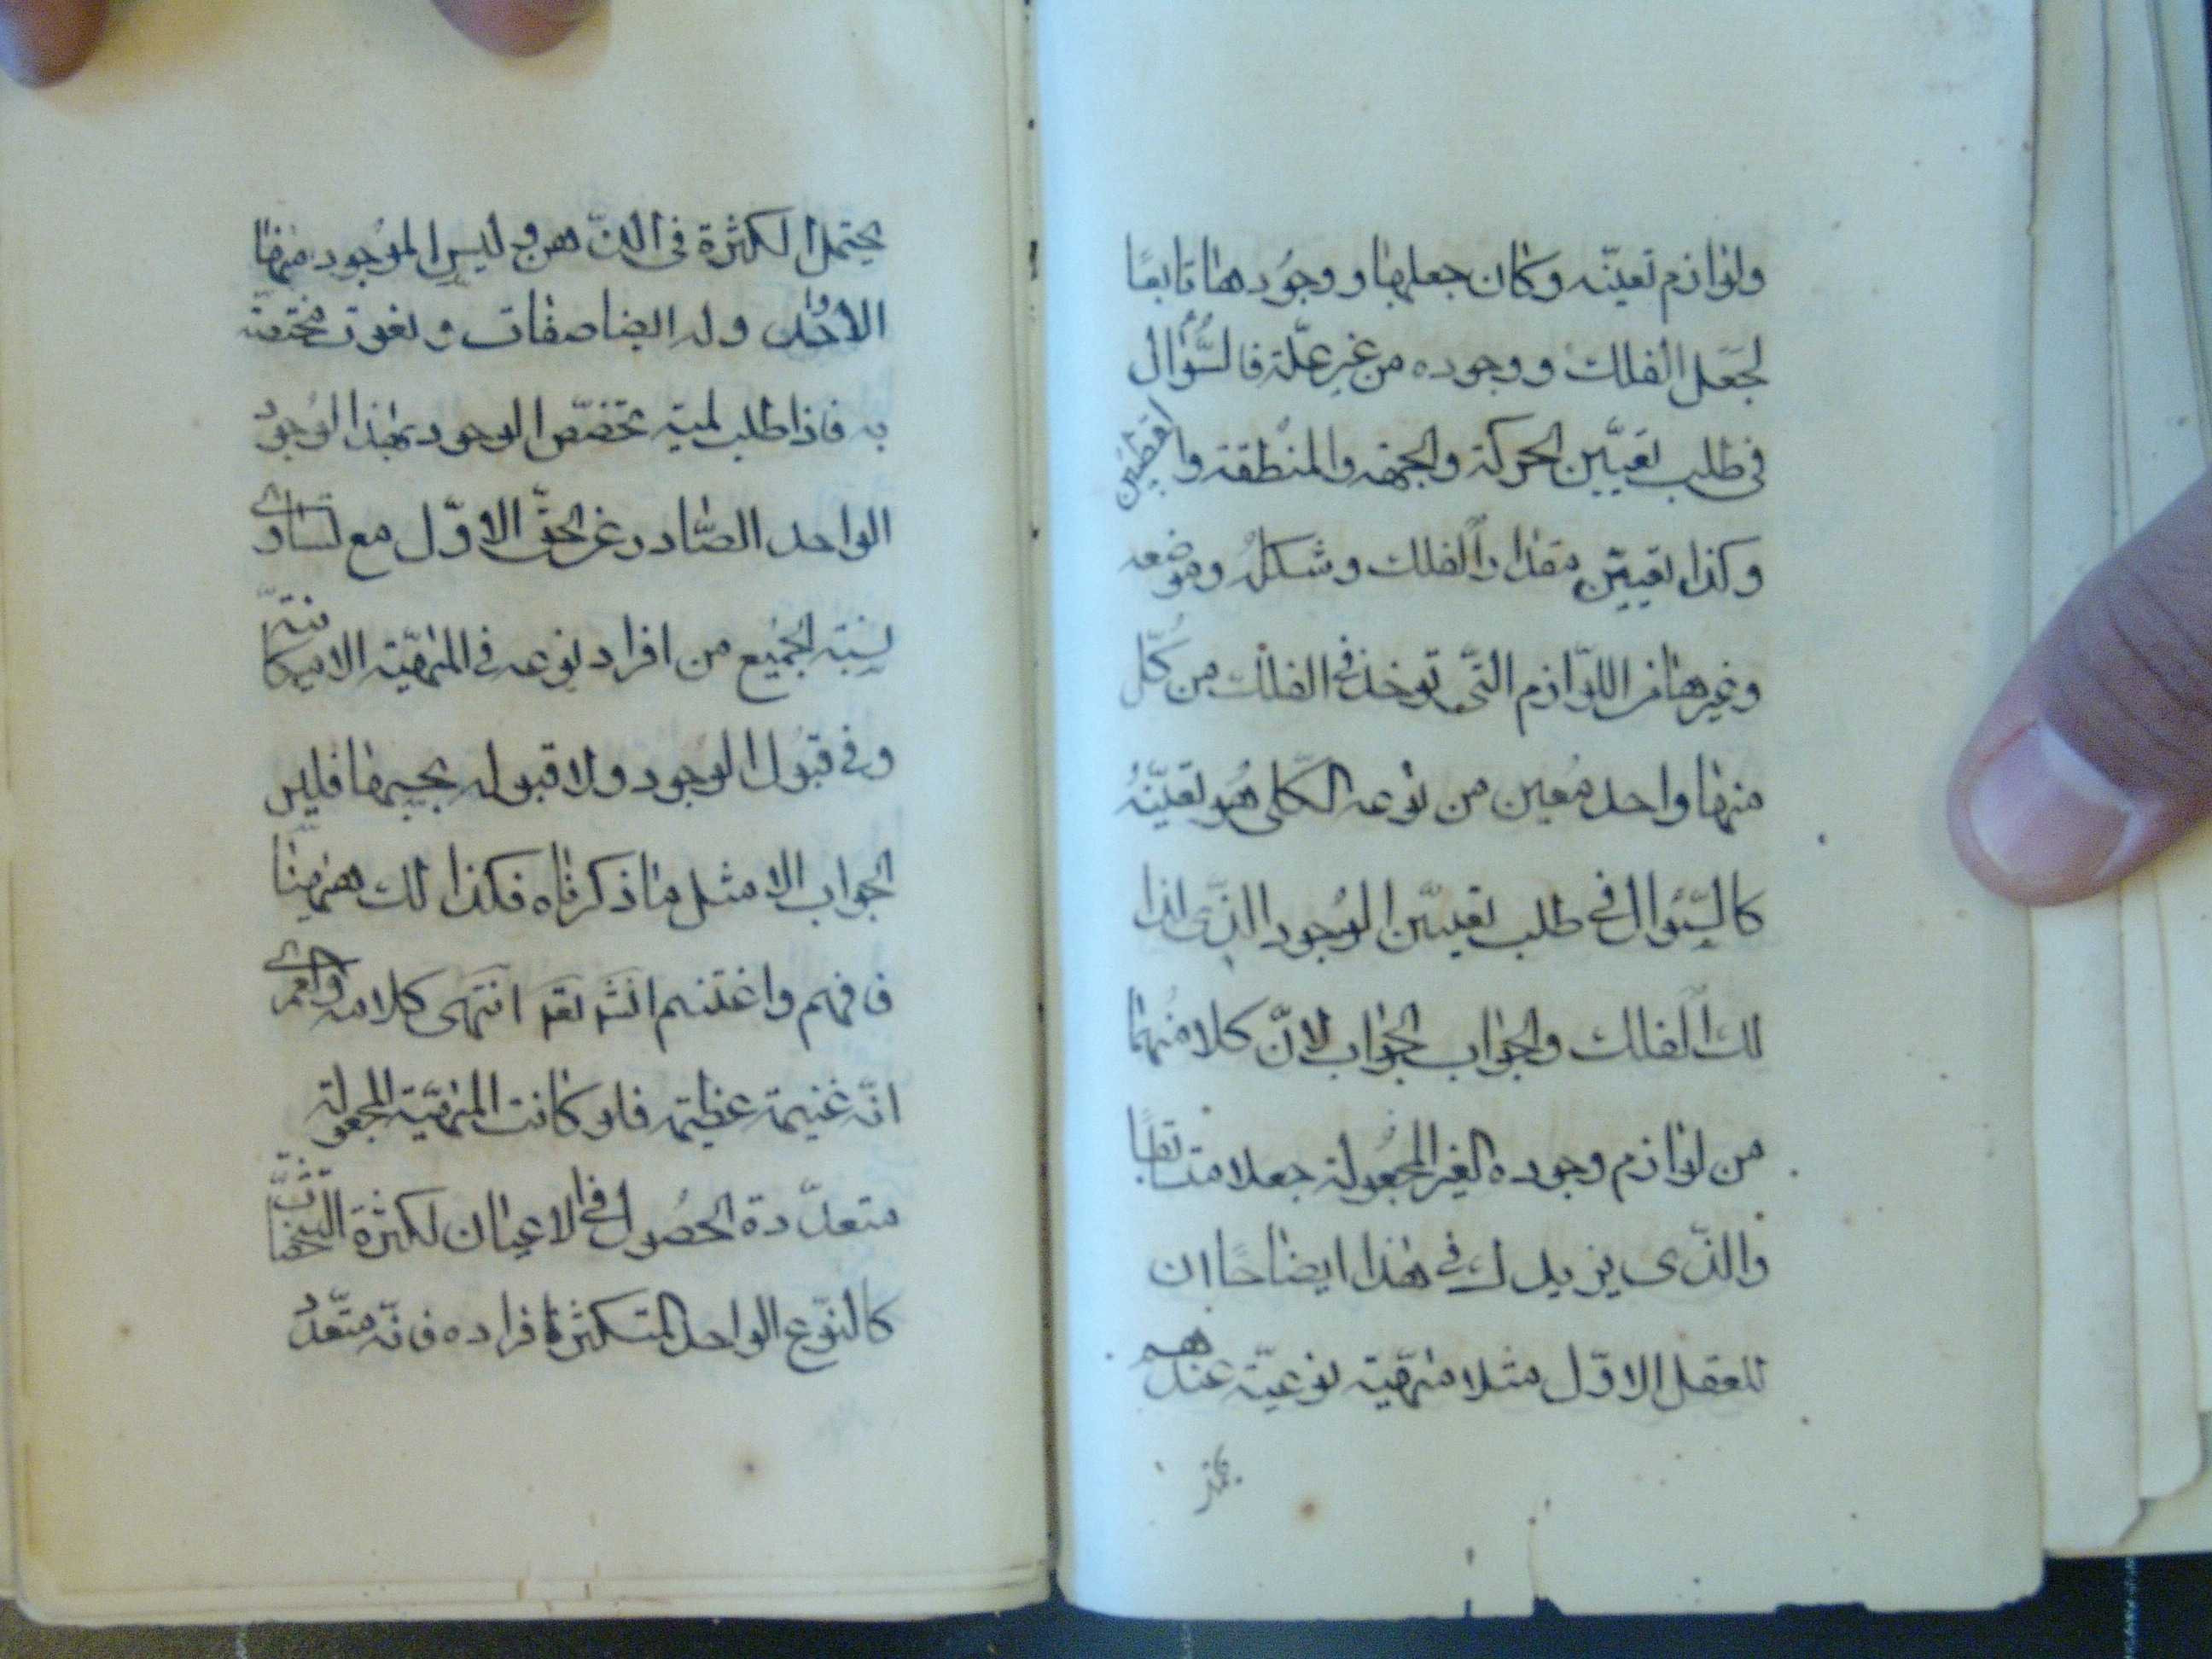 ولوازم تعينه وكان جعلها و وجودها تابعًا
لجعل الفلك ووجوده من غير علّة فالسُّؤال
فى طلب تعيّين الحركة والجهة والمنطقة والقطبين
وكذا تعيين مقدار الفلك وشكله وموضعه
وغيرها من اللوّازم التّى توخذ فى الفلك من كلّ
منها واحد مُعين من نوعه الكلّى هُو تعيّنهُ
كالسّئوال فى طلب تعيين الوُجود الذّى لذا
لك الفلك والجواب الجواب لانّ كلا منهما
من لوازم وجوده الغير المجعولة جعلا
والذّى يزيدك فى هذا ايضاحًا ان
للعقل الاوّل مثلا مهيّة نوعيّة عندهم
يحتمل الكثرة فى الذّهن وليس الموجود منها
الا وله ايضا صفات ونعوت مختصّة
به فاذا طلب لمية تخصّص الوجود بهذا الوجود
الواحد الصّادر عن الحقّ الاوّل مع تساوى
نسبة الجميع من افراد نوعه فى المهيّة الامكانيّة
وفى قبول الوجود ولا قبوله بحسبها فليس
الجواب الا مثل ما ذكرناه فكذا لك ههنا
فافهم واغتنم انتهى كلامه ولعمرى
انّه غنيمة عظيمة فلو كانت المهيّة المجعولة
متعدّدة الحصُول فى الاعيان لكثرة
كالنّوع الواحد المتكثرة افراده فانّه متعدّد